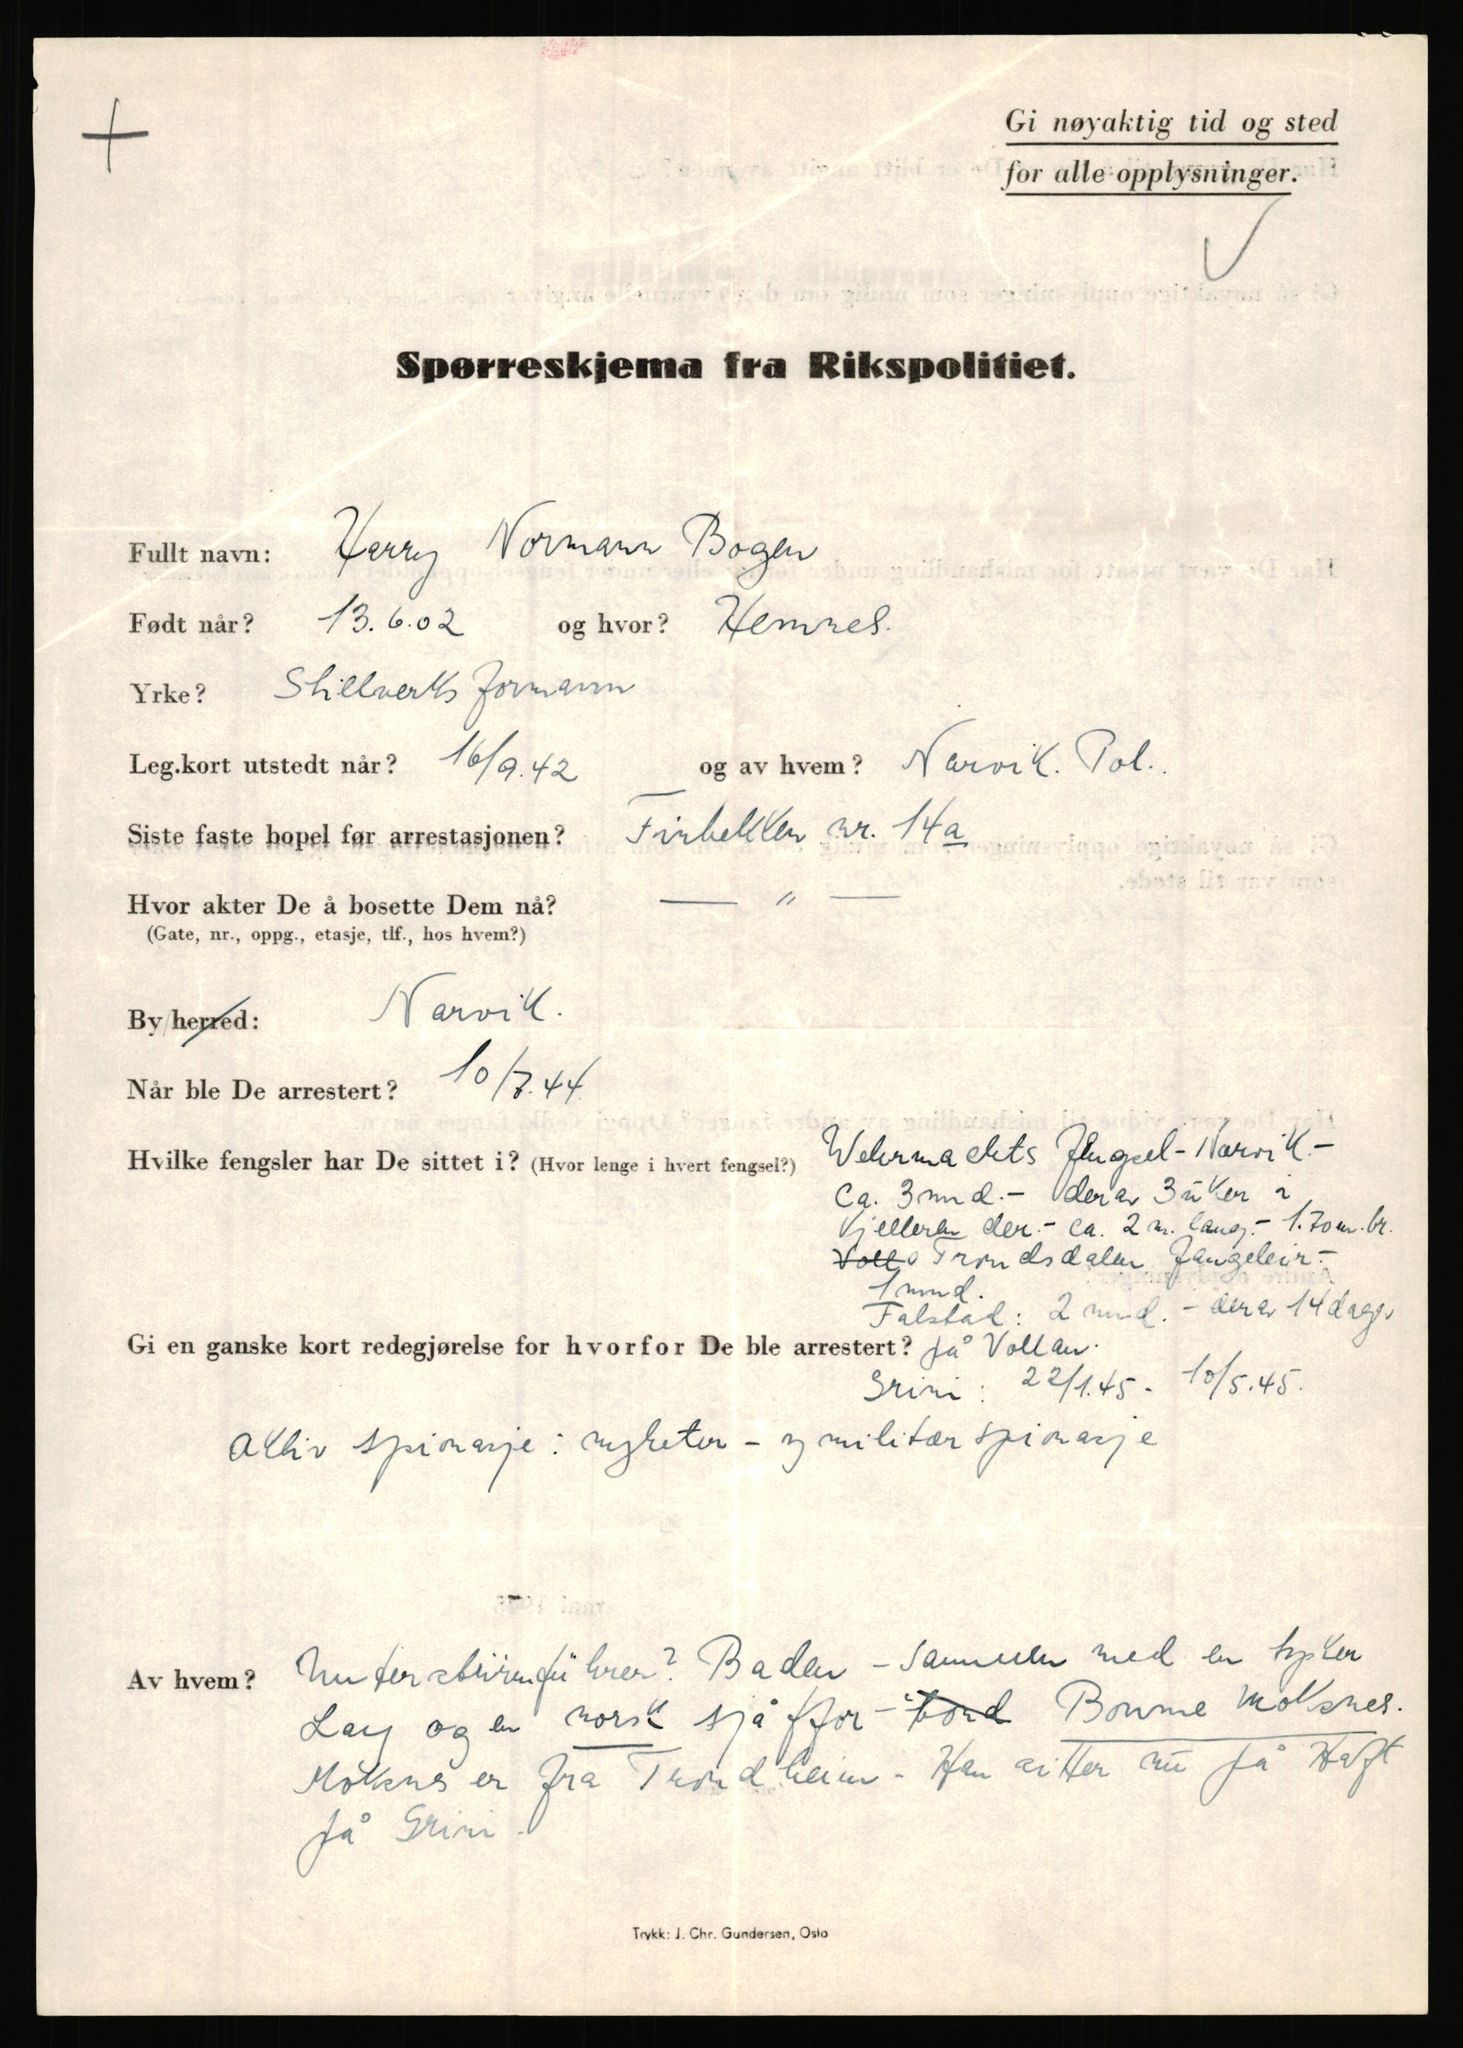 Gi nøyaktig tid og sted
for alle opplysninger.
Spørreskjema fra Rikspolitiet.
Fullt navn: Harry Normann Bogen
Født når? 13.6.02 og hvor? Hemnes.
Yrke? Stillverks formann
Leg.kort utstedt når? 16/9.42 og av hvem? Narvik. Pol.
Siste faste bopel før arrestasjonen? Finbekken nr. 14a
Hvor akter De å bosette Dem nå? — " —
(Gate, nr., oppg., etasje, tlf., hos hvem?)
By/herred: Narvik.
Når ble De arrestert? 10/7.44
Hvilke fengsler har De sittet i? (Hvor lenge i hvert fengsel?) Wehrmachts fengsel - Narvik. -
ca. 3 mnd. - derav 3 uker i
kjelleren der. - ca. 2 m. lang. - 1.70 m. br.
Trondsdalen fangeleir. -
1 mnd.
Falstad: 2 mnd. - derav 14 dager
Gi en ganske kort redegjørelse for hvorfor De ble arrestert? på Vollan.
Grini: 22/1.45 - 10/5.45.
Aktiv spionasje: nyheter - og militær spionasje
Av hvem? Untersturmführer? Baden - sammen med en tysker
Lay og en norsk sjåffør - Bonne Moksnes.
Moksnes er fra Trondheim - Han sitter nu på Haft
på Grini.
Trykk: J. Chr. Gundersen, Oslo